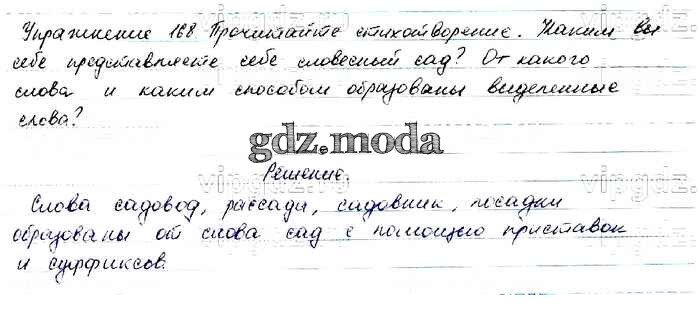 Упражнение 168 Прочитайте стихотворение. Каким вы
себе представляете себе словесный сад? От какого
слова и каким способом образованы выделенные
слова?
gdz.moda
Решение.
Слова садовод, рассады, садовник, посадки
образованы от слова сад с помощью приставок
и суффиксов.